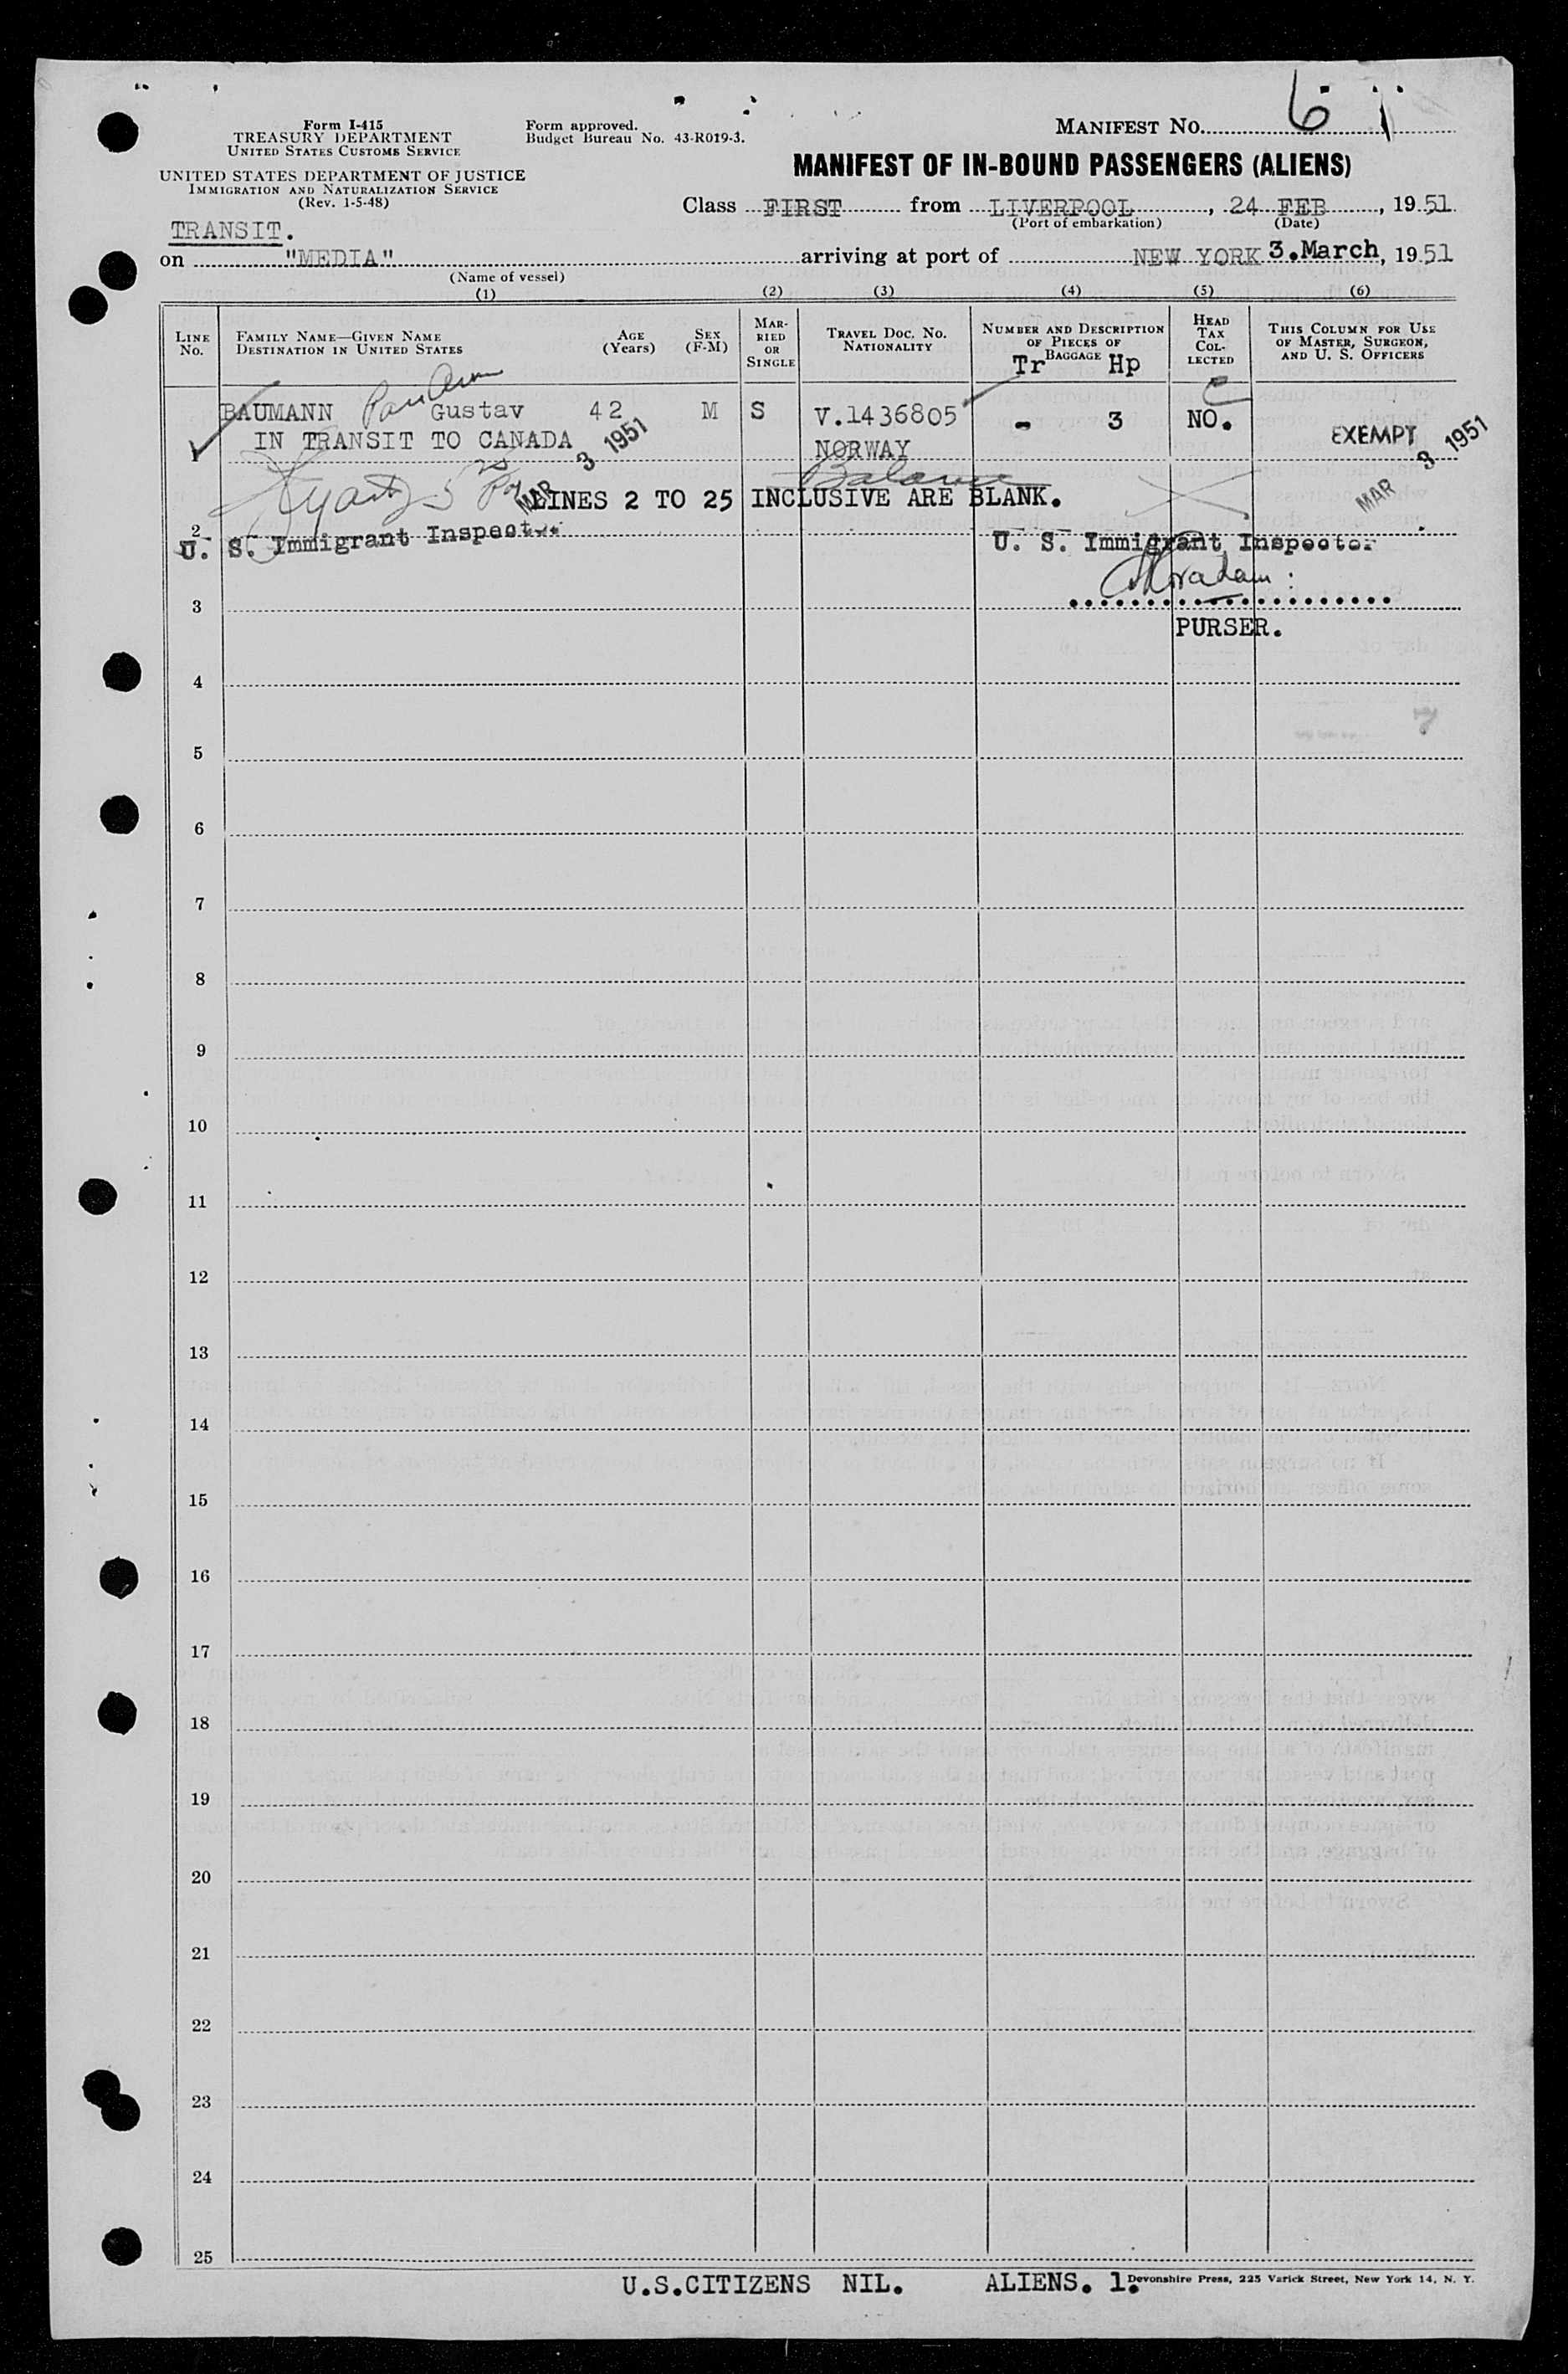 Form I-415
TREASURY DEPARTMENT
UNITED STATES CUSTOMS SERVICE
UNITED STATES DEPARTMENT OF JUSTICE
IMMIGRATION AND NATURALIZATION SERVICE
(Rev. 1-5-48)
Form approved.
Budget Bureau No. 43-R019-3.
MANIFEST NO. 6
MANIFEST OF IN-BOUND PASSENGERS (ALIENS)
Class FIRST from LIVERPOOL, 24 FEB, 1951
(Port of embarkation) (Date)
TRANSIT.
on "MEDIA" arriving at port of NEW YORK 3.March, 1951
(Name of vessel)
(1) (2) (3) (4) (5) (6)
LINE NO.
FAMILY NAME—GIVEN NAME
DESTINATION IN UNITED STATES
AGE (Years)
SEX (F-M)
MARRIED OR SINGLE
TRAVEL DOC. NO.
NATIONALITY
NUMBER AND DESCRIPTION OF PIECES OF BAGGAGE
Tr Hp
HEAD TAX COLLECTED
THIS COLUMN FOR USE OF MASTER, SURGEON, AND U. S. OFFICERS
BAUMANN Gustav 42 M S V.1436805 - 3 NO. EXEMPT
1 IN TRANSIT TO CANADA NORWAY
MAR 3 1951
MAR 3 1951
LINES 2 TO 25 INCLUSIVE ARE BLANK.
2
U. S. Immigrant Inspector
U. S. Immigrant Inspector
3
PURSER.
4
7
5
6
7
8
9
10
11
12
13
14
15
16
17
18
19
20
21
22
23
24
25
U.S.CITIZENS NIL. ALIENS. 1.
Devonshire Press, 225 Varick Street, New York 14, N. Y.